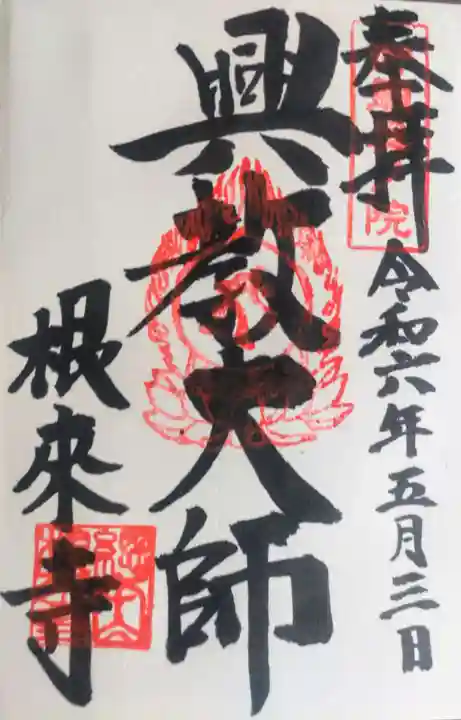 奉拝
令和六年五月三日
興教大師
根來寺
院